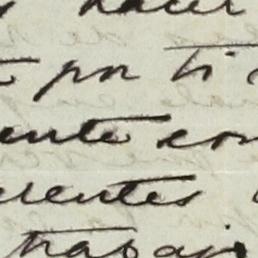 hacer
por ti
ente con
erentes
trabajo